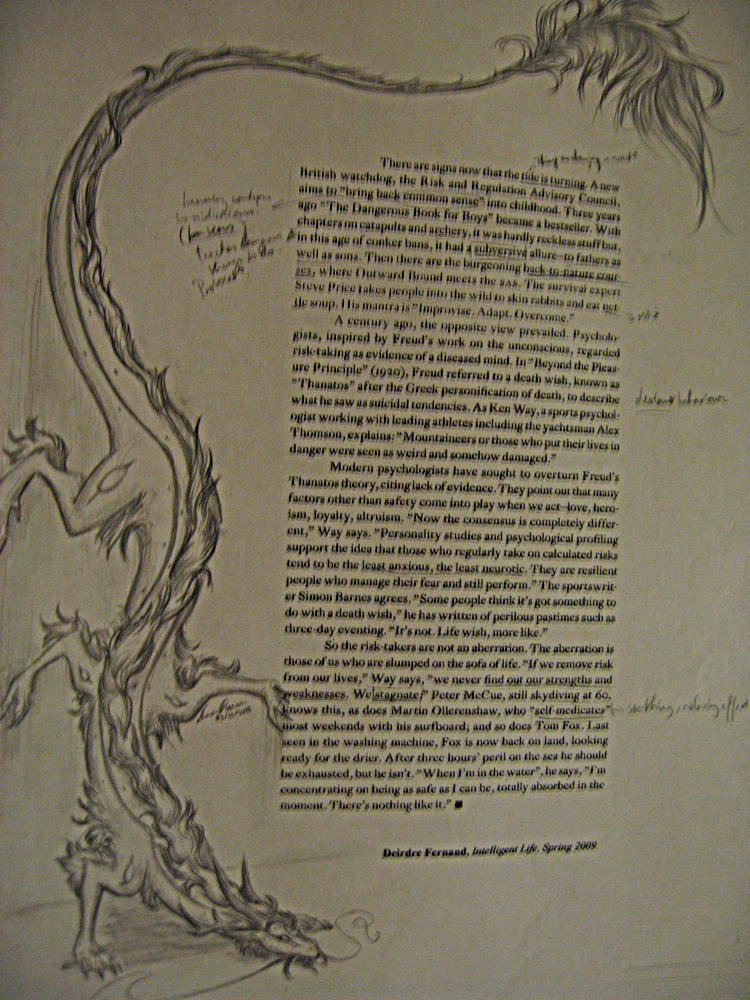 There are signs now that the tide is turning. A new
British watchdog, the Risk and Regulation Advisory Council,
aims to "bring back common sense" into childhood. Three years
ago "The Dangerous Book for Boys" became a bestseller. With
chapters on catapults and archery, it was hardly reckless stuff but,
in this age of conker bans, it had a subversive allure–to fathers as
well as sons. Then there are the burgeoning back-to-nature cour-
ses, where Outward Bound meets the SAS. The survival expert
Steve Price takes people into the wild to skin rabbits and eat net-
tle soup. His mantra is "Improvise. Adapt. Overcome."
A century ago, the opposite view prevailed. Psycholo-
gists, inspired by Freud's work on the unconscious, regarded
risk-taking as evidence of a diseased mind. In "Beyond the Pleas-
ure Principle" (1920), Freud referred to a death wish, known as
"Thanatos" after the Greek personification of death, to describe
what he saw as suicidal tendencies. As Ken Way, a sports psychol-
ogist working with leading athletes including the yachtsman Alex
Thomson, explains: "Mountaineers or those who put their lives in
danger were seen as weird and somehow damaged."
deviant behaviour
Modern psychologists have sought to overturn Freud's
Thanatos theory, citing lack of evidence. They point out that many
factors other than safety come into play when we act–love, hero-
ism, loyalty, altruism. "Now the consensus is completely differ-
ent," Way says. "Personality studies and psychological profiling
support the idea that those who regularly take on calculated risks
tend to be the least anxious, the least neurotic. They are resilient
people who manage their fear and still perform." The sportswrit-
er Simon Barnes agrees. "Some people think it's got something to
do with a death wish," he has written of perilous pastimes such as
three-day eventing. "It's not. Life wish, more like."
So the risk-takers are not an aberration. The aberration is
those of us who are slumped on the sofa of life. "If we remove risk
from our lives," Way says, "we never find out our strengths and
weaknesses. We stagnate." Peter McCue, still skydiving at 60,
knows this, as does Martin Ollerenshaw, who "self-medicates"
soothing, relaxing effect
most weekends with his surfboard; and so does Tom Fox. Last
seen in the washing machine, Fox is now back on land, looking
ready for the drier. After three hours' peril on the sea he should
be exhausted, but he isn't. "When I'm in the water", he says, "I'm
concentrating on being as safe as I can be, totally absorbed in the
moment. There's nothing like it."
Deirdre Fernand, Intelligent Life, Spring 2009.